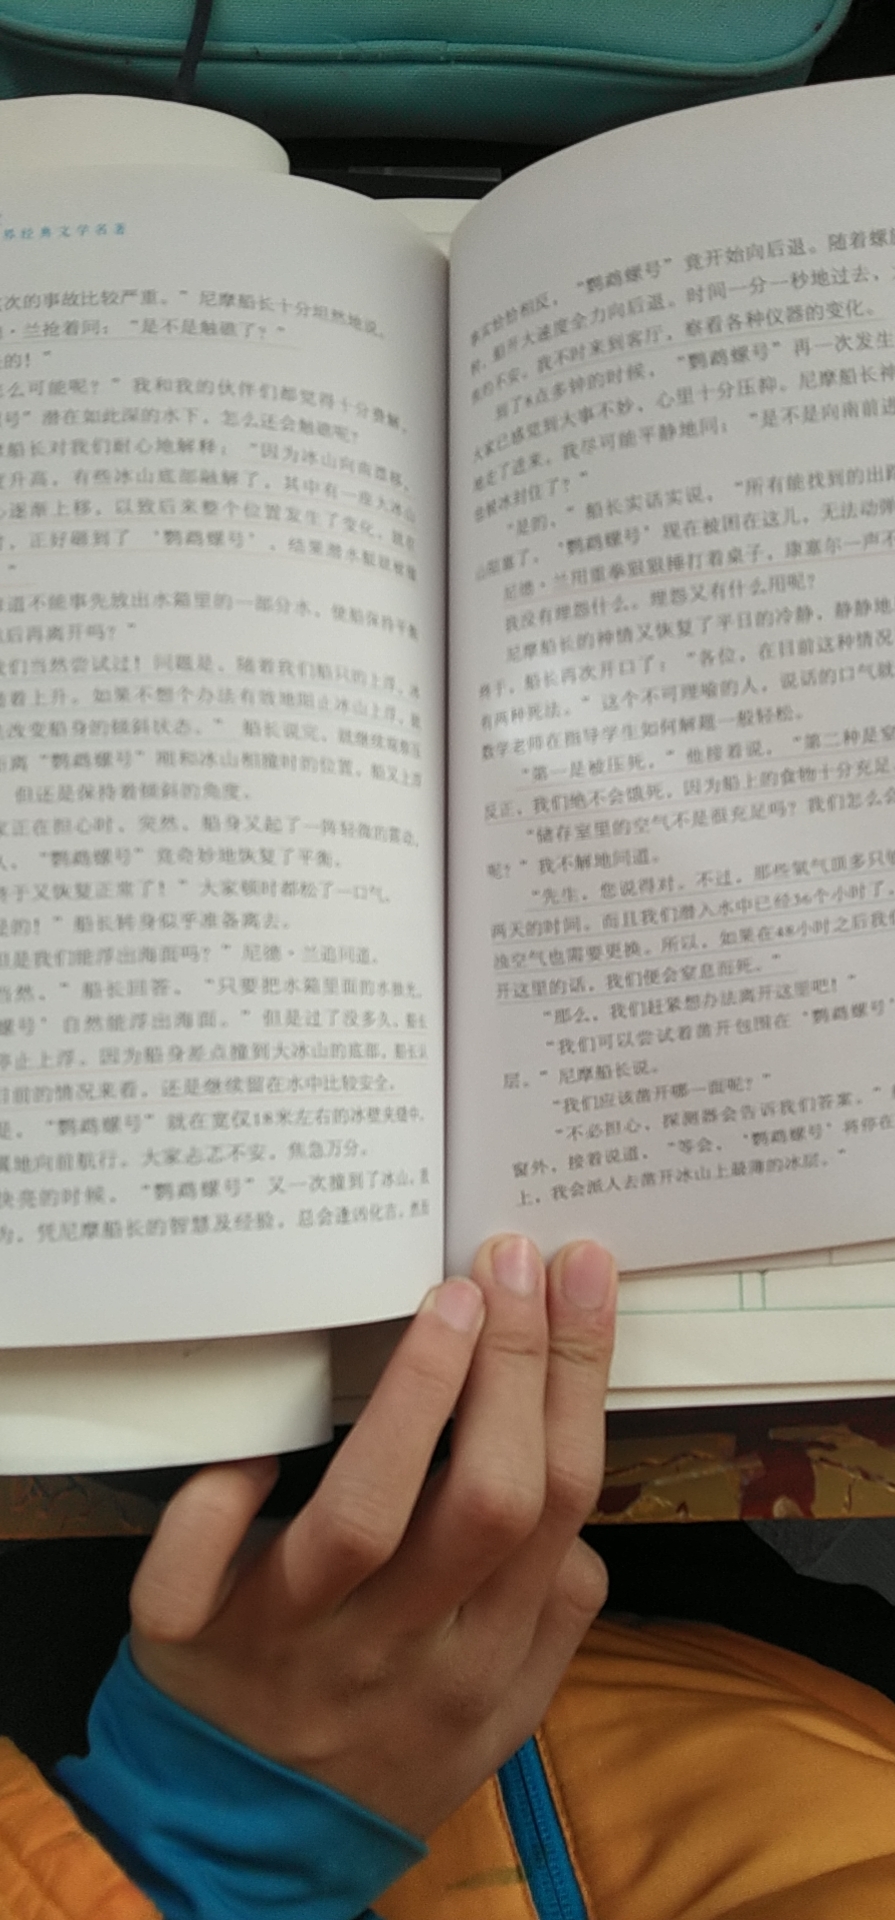 界经典文学名著
次的事故比较严重。”尼摩船长十分坦然地说。
·兰抢着问：“是不是触礁了？”
的！”
么可能呢？”我和我的伙伴们都觉得十分费解。
号”潜在如此深的水下，怎么还会触礁呢？
船长对我们耐心地解释：“因为冰山向南漂移，
升高，有些冰山底部融解了，其中有一座大冰山
逐渐上移，以致后来整个位置发生了变化，就在
，正好砸到了‘鹦鹉螺号’，结果潜水艇就倾
”
道不能事先放出水箱里的一部分水，使船保持平衡
后再离开吗？”
我们当然尝试过！问题是，随着我们船只的上浮，冰
着上升。如果不想个办法有效地阻止冰山上浮，就
改变船身的倾斜状态。”船长说完，就继续观察压
离“鹦鹉螺号”刚和冰山相撞时的位置，船又上浮
但还是保持着倾斜的角度。
家正在担心时，突然，船身又起了一阵轻微的震动，
“鹦鹉螺号”竟奇妙地恢复了平衡。
终于又恢复正常了！”大家顿时都松了一口气。
是的！”船长转身似乎准备离去。
但是我们能浮出海面吗？”尼德·兰追问道。
当然。”船长回答，“只要把水箱里面的水抽光，
螺号’自然能浮出海面。”但是过了没多久，船长
停止上浮，因为船身差点撞到大冰山的底部，船长认
目前的情况来看，还是继续留在水中比较安全。
是，“鹦鹉螺号”就在宽仅18米左右的冰壁夹缝中，
翼地向前航行。大家忐忑不安，焦急万分。
快亮的时候，“鹦鹉螺号”又一次撞到了冰山。我
为，凭尼摩船长的智慧及经验，总会逢凶化吉。然而
事实恰恰相反，“鹦鹉螺号”竟开始向后退。随着螺旋
船开大速度全力向后退。时间一分一秒地过去，
的不安。我不时来到客厅，察看各种仪器的变化。
到了8点多钟的时候，“鹦鹉螺号”再一次发生
大家已感觉到大事不妙，心里十分压抑。尼摩船长神
地走了进来。我尽可能平静地问：“是不是向南前进
也被冰封住了？”
“是的，”船长实话实说，“所有能找到的出路
山阻塞了，‘鹦鹉螺号’现在被困在这儿，无法动弹
尼德·兰用重拳狠狠捶打着桌子，康塞尔一声不
我没有埋怨什么。埋怨又有什么用呢？
尼摩船长的神情又恢复了平日的冷静，静静地
终于，船长再次开口了：“各位，在目前这种情况
有两种死法。”这个不可理喻的人，说话的口气就
数学老师在指导学生如何解题一般轻松。
“第一是被压死，”他接着说，“第二种是窒
反正，我们绝不会饿死，因为船上的食物十分充足
“储存室里的空气不是很充足吗？我们怎么会
呢？”我不解地问道。
“先生，您说得对。不过，那些氧气顶多只够
两天的时间。而且我们潜入水中已经36个小时了，
浊空气也需要更换。所以，如果在48小时之后我们
开这里的话，我们便会窒息而死。”
“那么，我们赶紧想办法离开这里吧！”
“我们可以尝试着凿开包围在‘鹦鹉螺号’
层。”尼摩船长说。
“我们应该凿开哪一面呢？”
“不必担心，探测器会告诉我们答案。”
窗外，接着说道，“等会，‘鹦鹉螺号’将停在
上，我会派人去凿开冰山上最薄的冰层。”